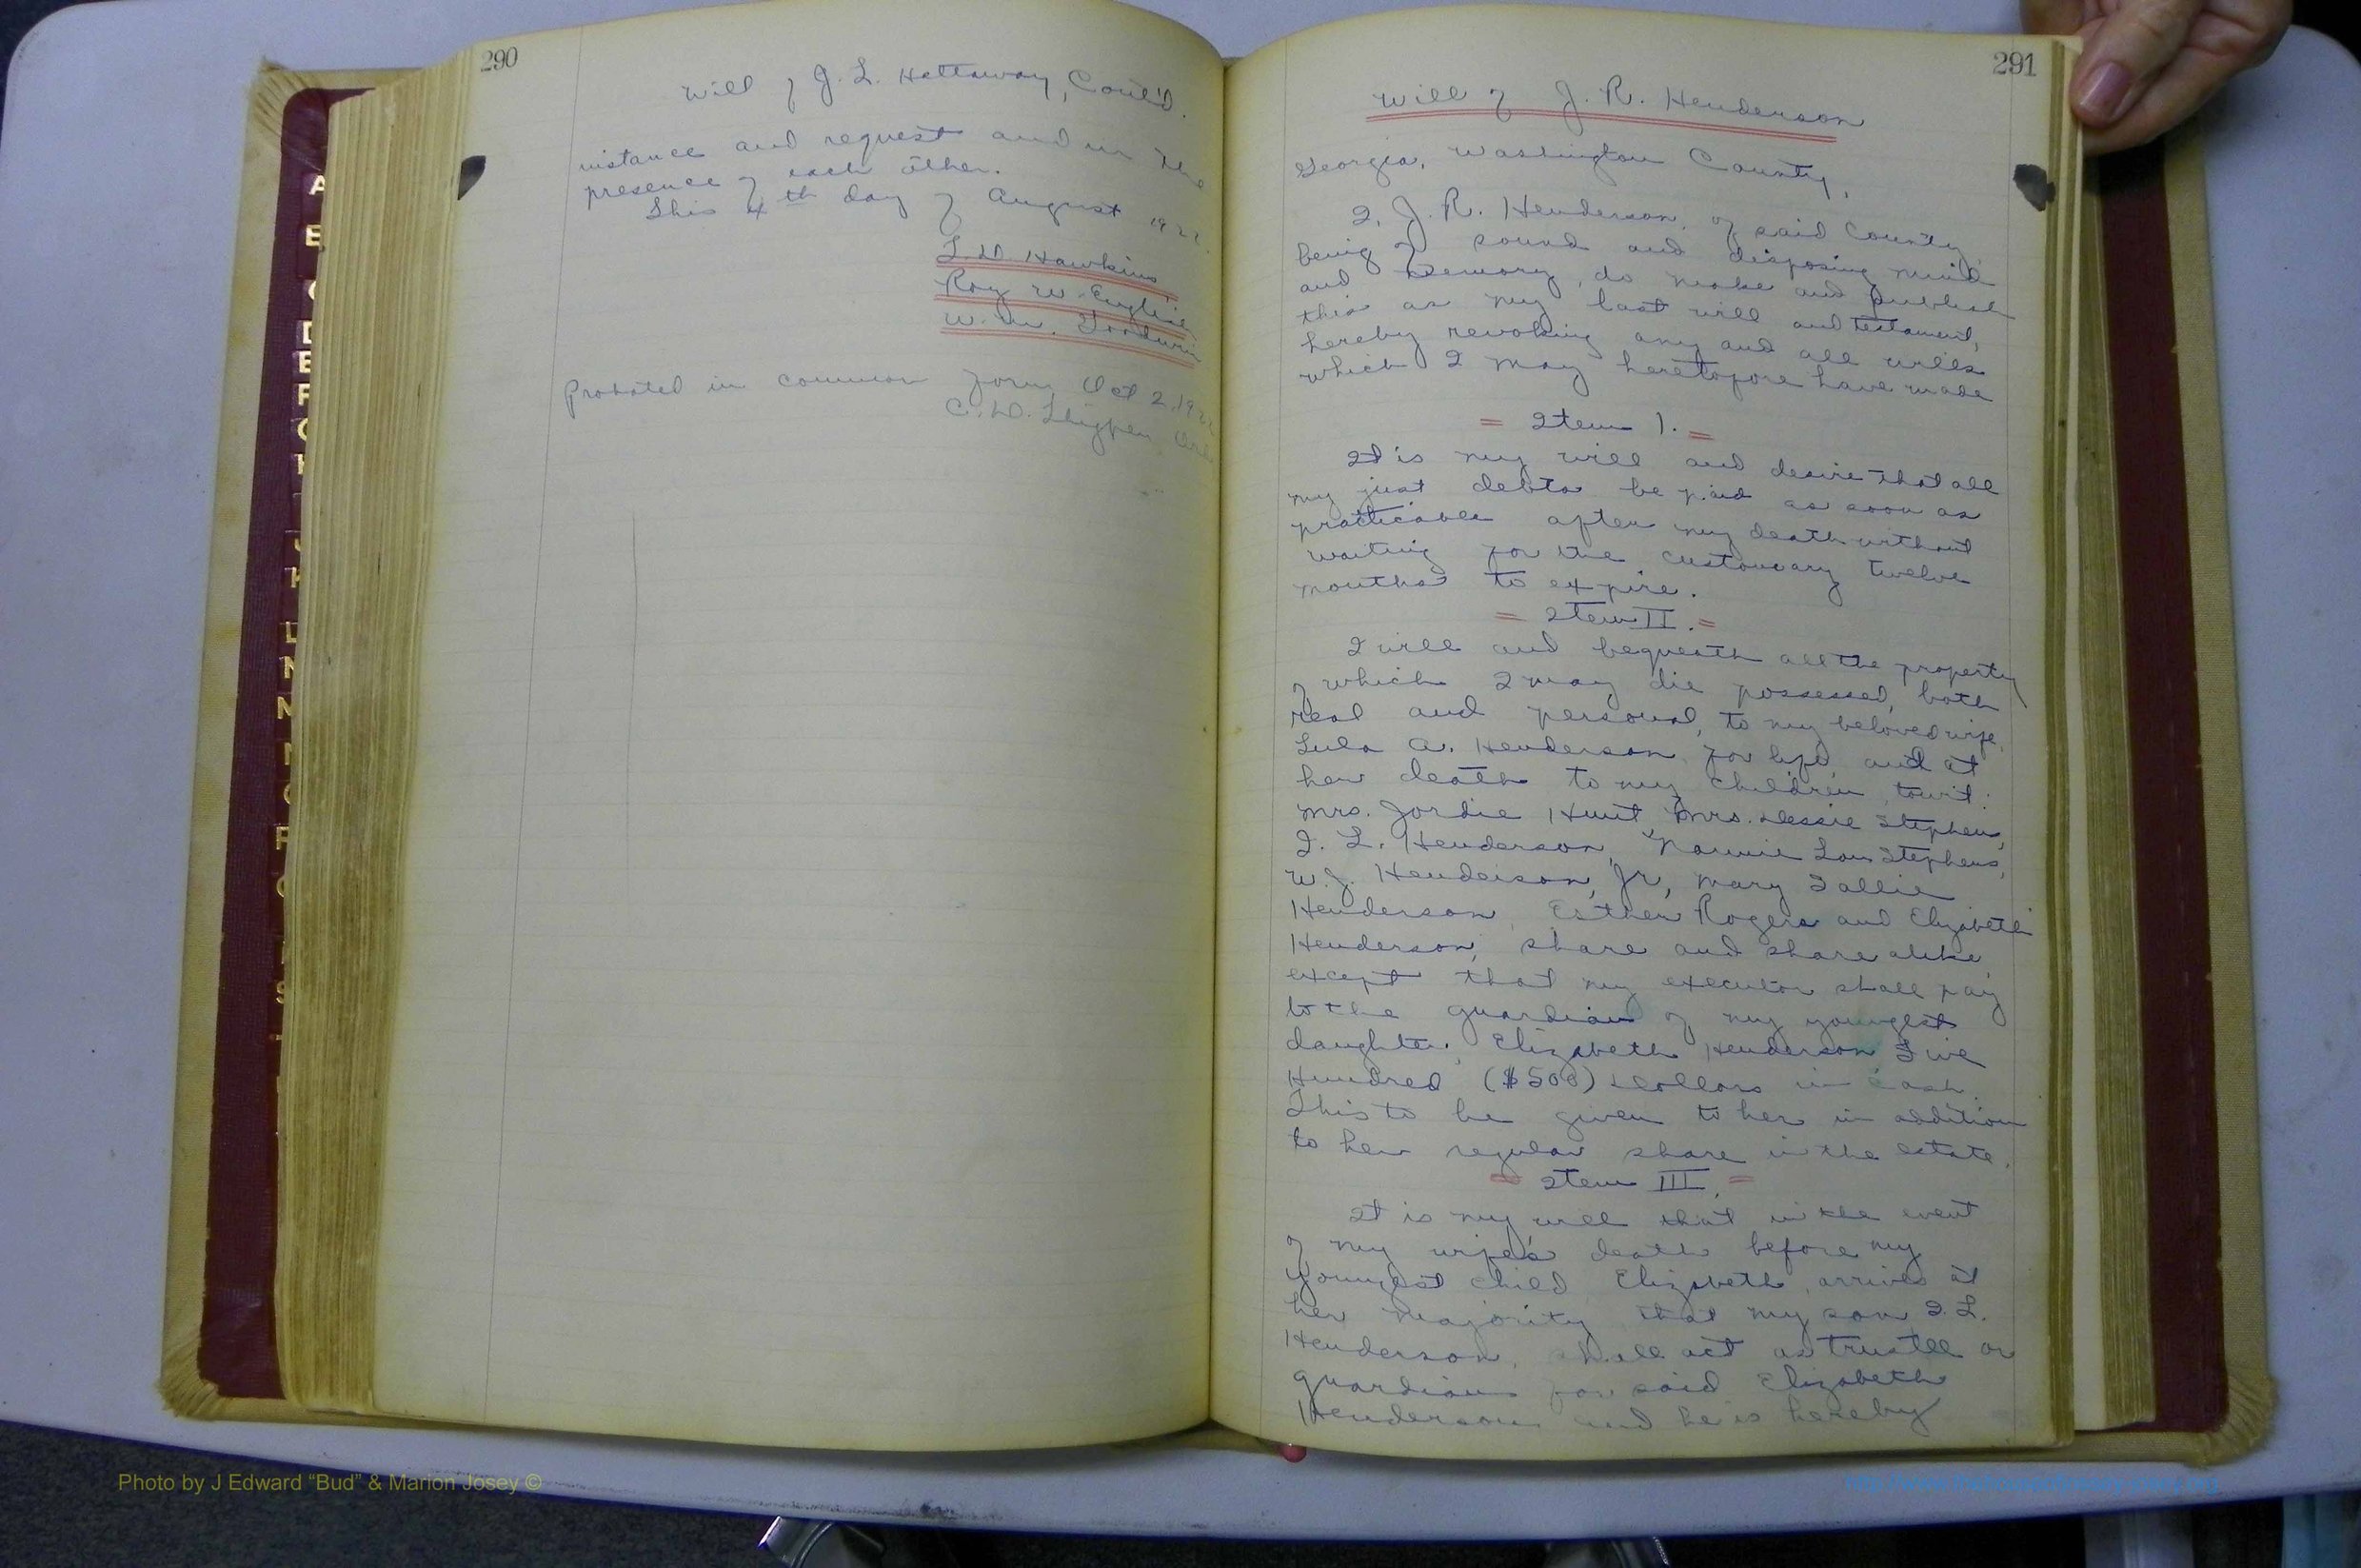 290
Will of J. L. Hattaway, Cont'd.
instance and request and in the
presence of each other.
This 4th day of August 192
L. D. Hawkins
Roy W. English
W. M. Goodwin
Probated in common form Oct 2, 192
C. D. Thigpen Ord
A
E
291
Will of J. R. Henderson
Georgia, Washington County,
I, J. R. Henderson, of said County,
being of sound and disposing mind
and memory, do make and publish
this as my last will and testament,
hereby revoking any and all wills
which I may heretofore have made
= Item 1. =
It is my will and desire that all
my just debts be paid as soon as
practicable after my death without
waiting for the customary twelve
months to expire.
= Item II. =
I will and bequeath all the property
of which I may die possessed, both
real and personal, to my beloved wife,
Lula A. Henderson, for life, and at
her death to my children, towit:
Mrs. Jordie Hunt, Mrs. Dessie Stephens,
I. L. Henderson, Nannie Lou Stephens,
W. J. Henderson, Jr, Mary Sallie
Henderson, Esther Rogers and Elizabeth
Henderson, share and share alike,
except that my executor shall pay
to the guardian of my youngest
daughter, Elizabeth Henderson Five
Hundred ($500) Dollars in cash.
This to be given to her in addition
to her regular share in the estate.
= Item III. =
It is my will that in the event
of my wife's death before my
youngest child, Elizabeth, arrives at
her majority that my son I. L.
Henderson, shall act as trustee or
guardian for said Elizabeth
Henderson and he is hereby
Photo by J Edward “Bud” & Marion Josey ©